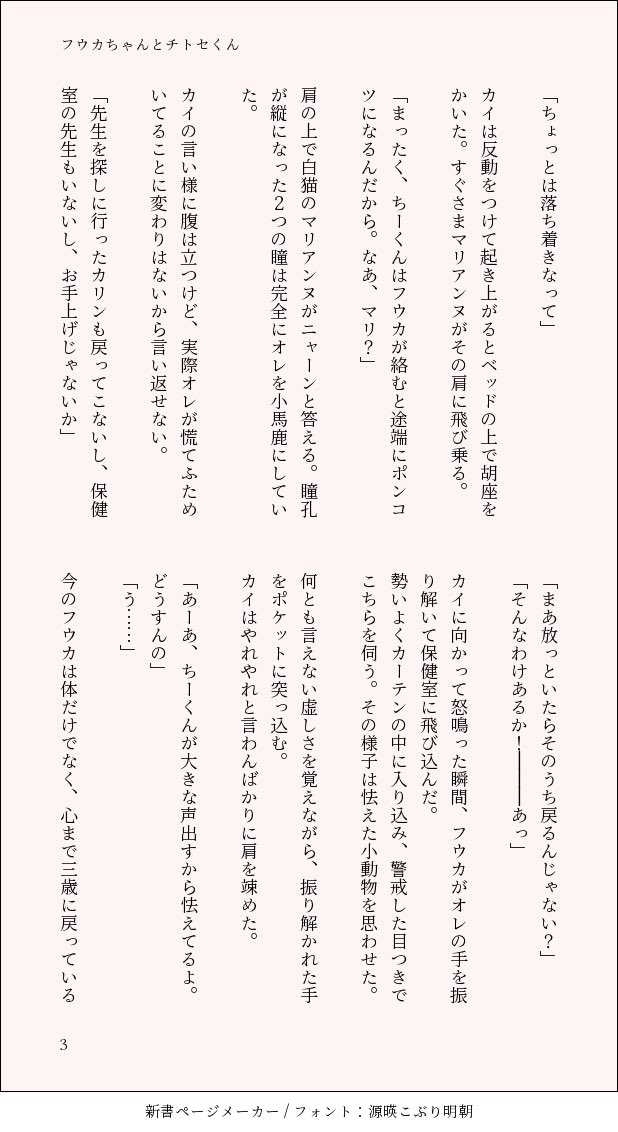 フウカちゃんとチトセくん
「ちょっとは落ち着きなって」
カイは反動をつけて起き上がるとベッドの上で胡座を
かいた。すぐさまマリアンヌがその肩に飛び乗る。
「まったく、ちーくんはフウカが絡むと途端にポンコ
ツになるんだから。なあ、マリ？」
肩の上で白猫のマリアンヌがニャーンと答える。瞳孔
が縦になった２つの瞳は完全にオレを小馬鹿にしてい
た。
カイの言い様に腹は立つけど、実際オレが慌てふため
いてることに変わりはないから言い返せない。
「先生を探しに行ったカリンも戻ってこないし、保健
室の先生もいないし、お手上げじゃないか」
「まあ放っといたらそのうち戻るんじゃない？」
「そんなわけあるか！――――あっ」
カイに向かって怒鳴った瞬間、フウカがオレの手を振
り解いて保健室に飛び込んだ。
勢いよくカーテンの中に入り込み、警戒した目つきで
こちらを伺う。その様子は怯えた小動物を思わせた。
何とも言えない虚しさを覚えながら、振り解かれた手
をポケットに突っ込む。
カイはやれやれと言わんばかりに肩を竦めた。
「あーあ、ちーくんが大きな声出すから怯えてるよ。
どうすんの」
「う……」
今のフウカは体だけでなく、心まで三歳に戻っている
3
新書ページメーカー / フォント：源暎こぶり明朝